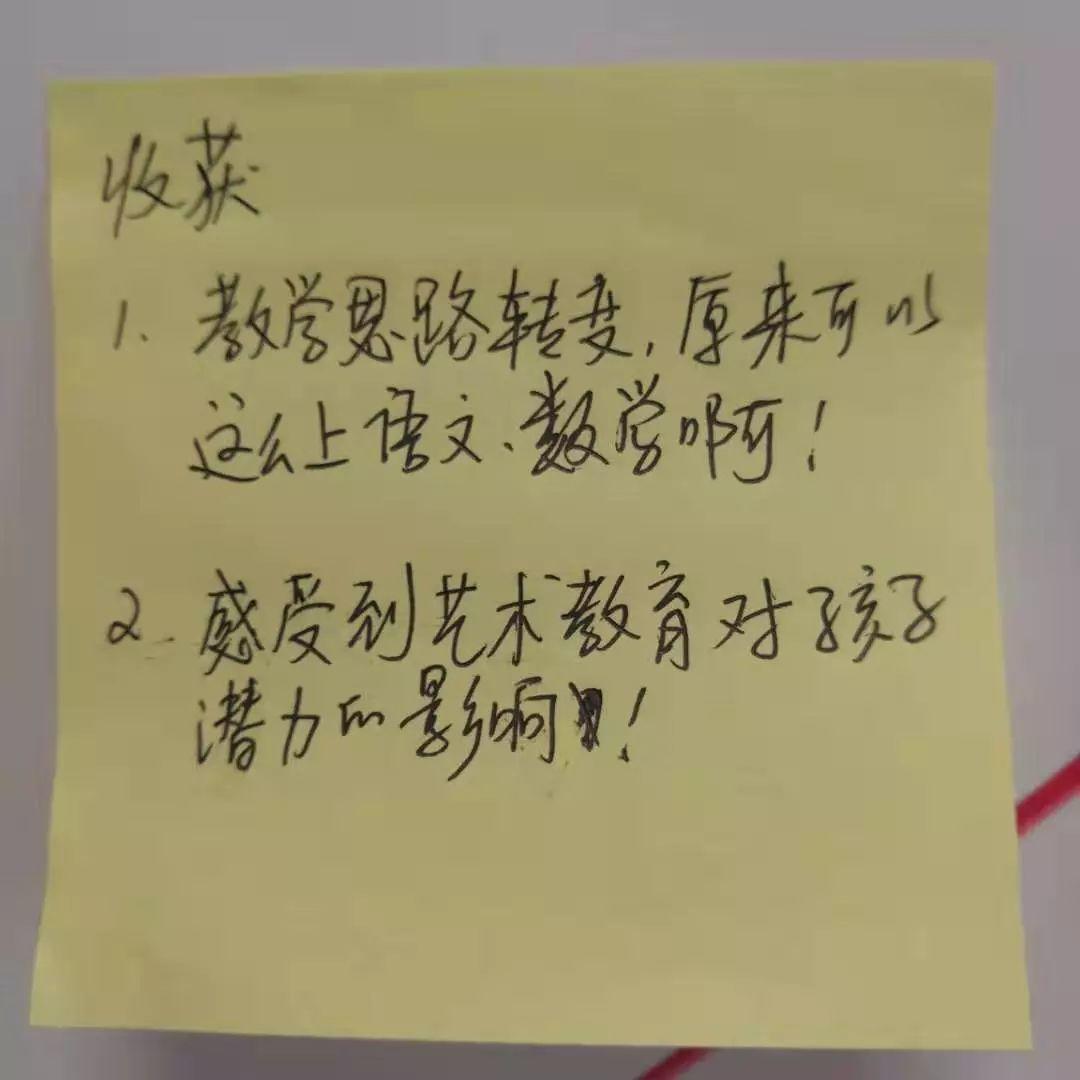 收获
1. 教学思路转变,原来可以
这么上语文、数学啊!
2. 感受到艺术教育对孩子
潜力的影响!